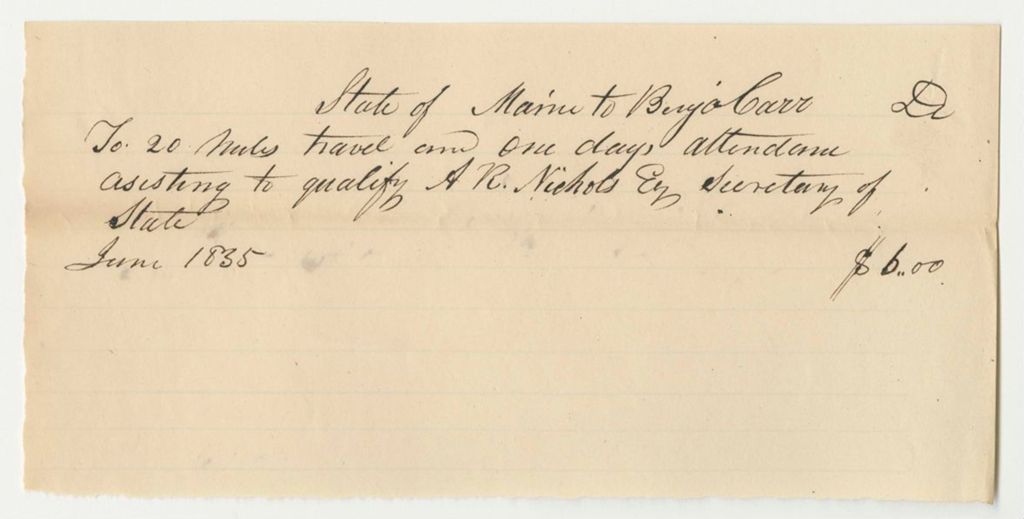 State of Maine to Benja Carr Dr
To 20 Miles travel and one days attendance
asisting to qualify A R. Nichols Esq Secretary of
State
June 1835 $6.00